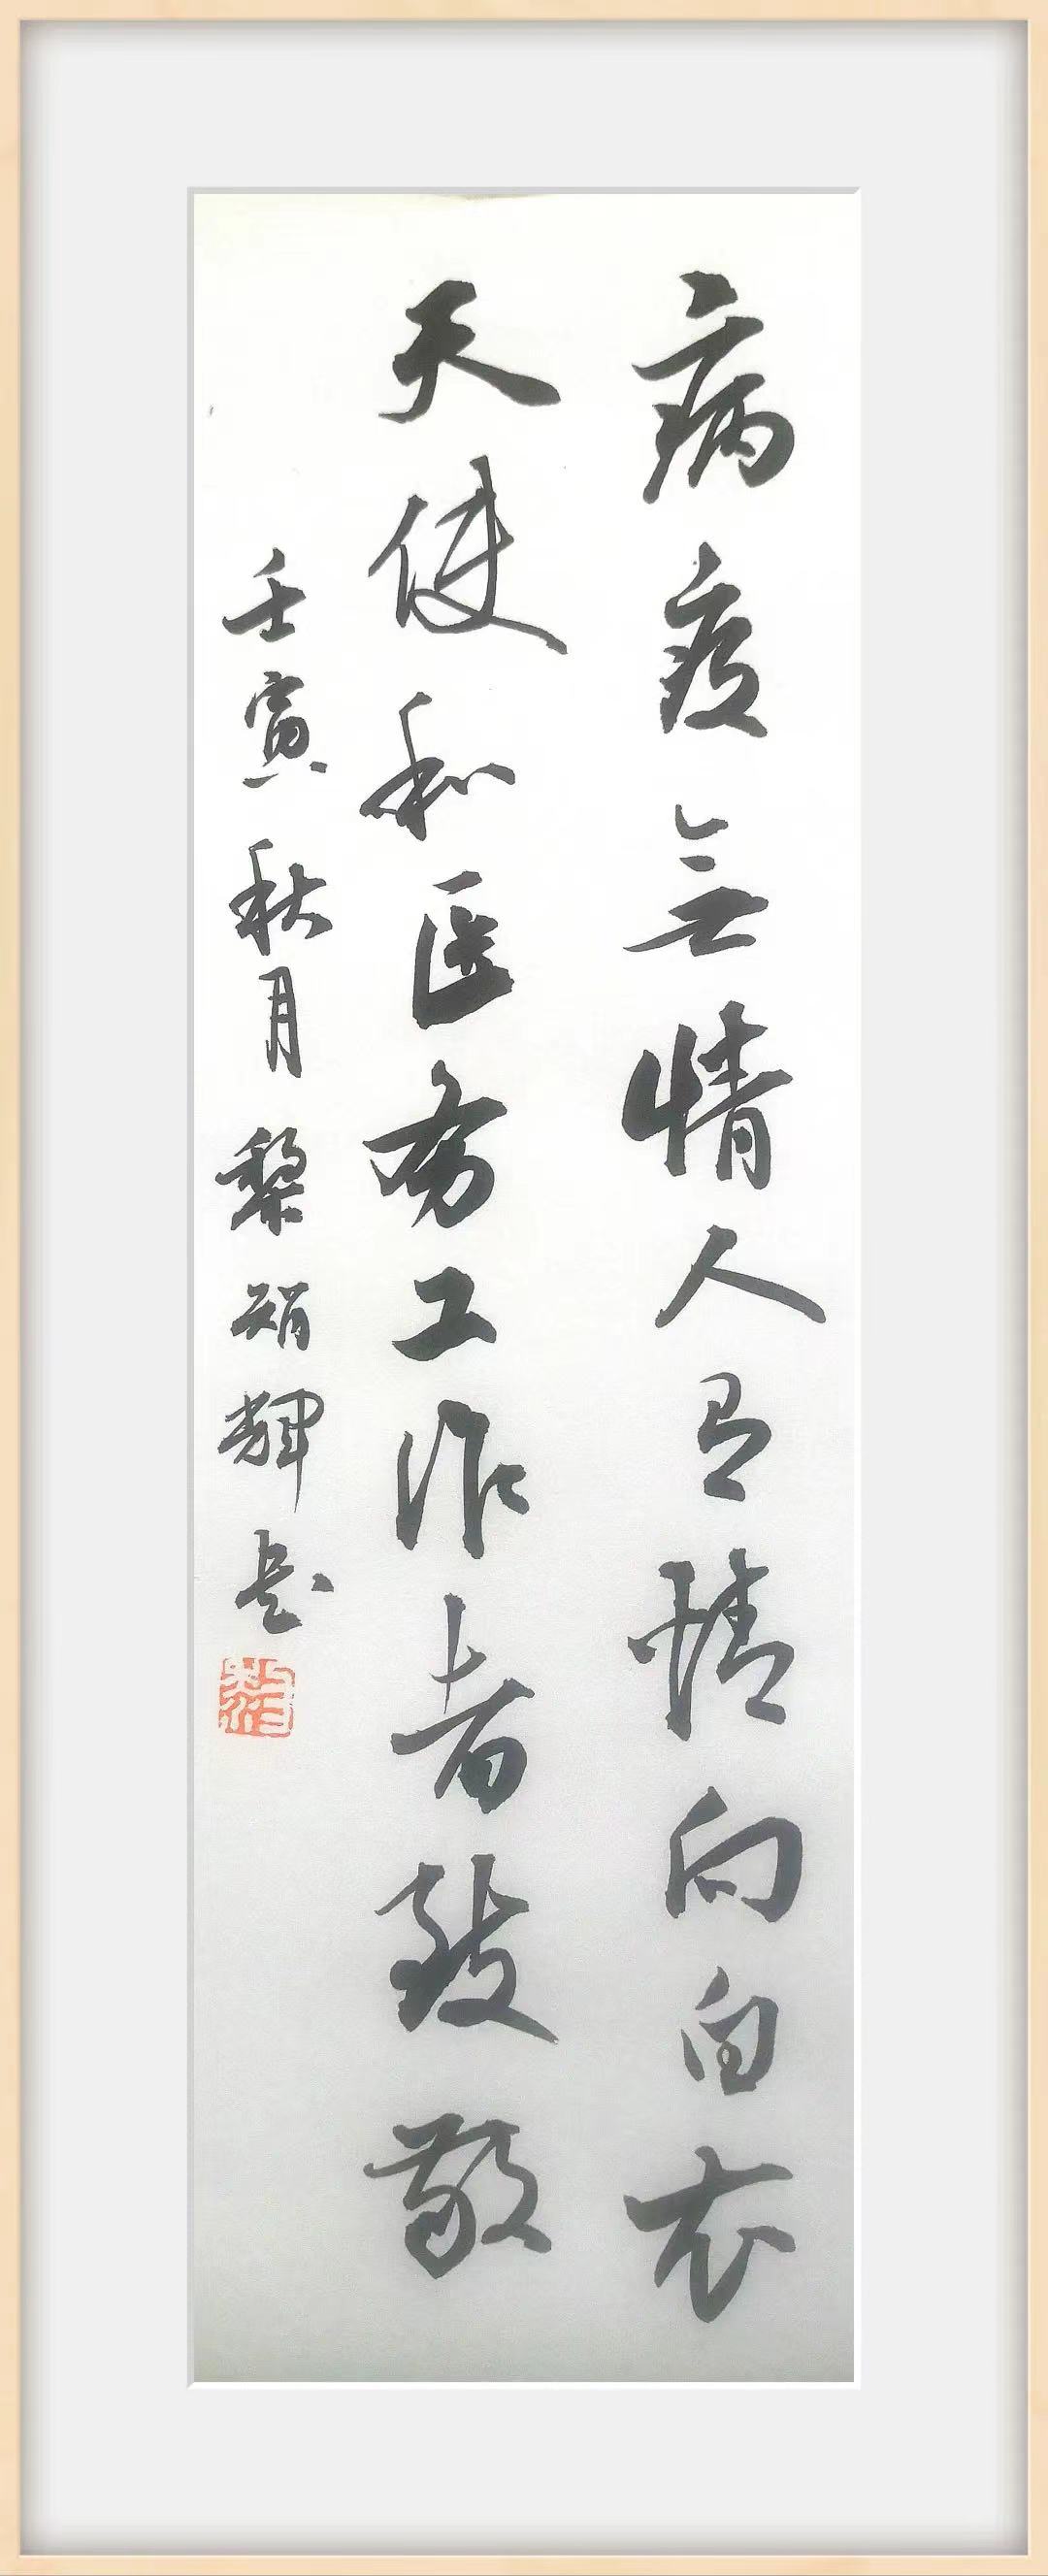 病疫無情人有情向白衣
天使和医务工作者致敬
壬寅秋月黎娟輝題